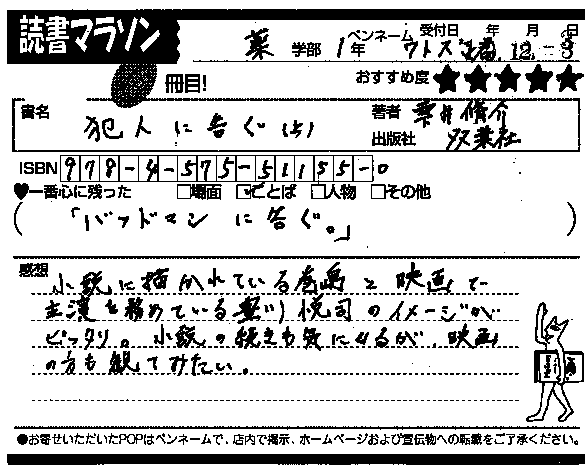 読書マラソン
薬 学部 1年 ペンネーム 受付日 年 月 日
12 - 8
冊目!
おすすめ度 ★★★★★
書名 犯人に告ぐ(上)
著者 雫井脩介
出版社 双葉社
ISBN 978-4-575-51155-0
♥一番心に残った □場面 ☑ことば □人物 □その他
(「バッドマンに告ぐ。」)
感想
小説に描かれている巻島と映画で
主演を務めている豊川悦司のイメージが
ピッタリ。小説の続きも気になるが、映画
の方も観てみたい。
●お寄せいただいたPOPはペンネームで、店内で掲示、ホームページおよび宣伝物への転載をご了承ください。